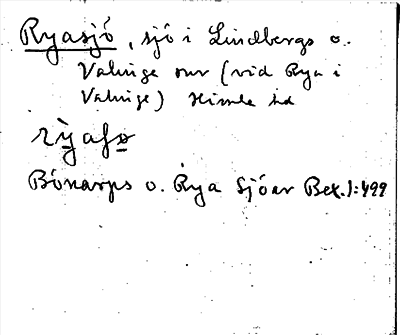 Ryasjö, sjö i Lindbergs o.
Valinge snr (vid Rya i
Valinge) Himle hd
Bönarps o. Rya Sjöar Bex. 1:499